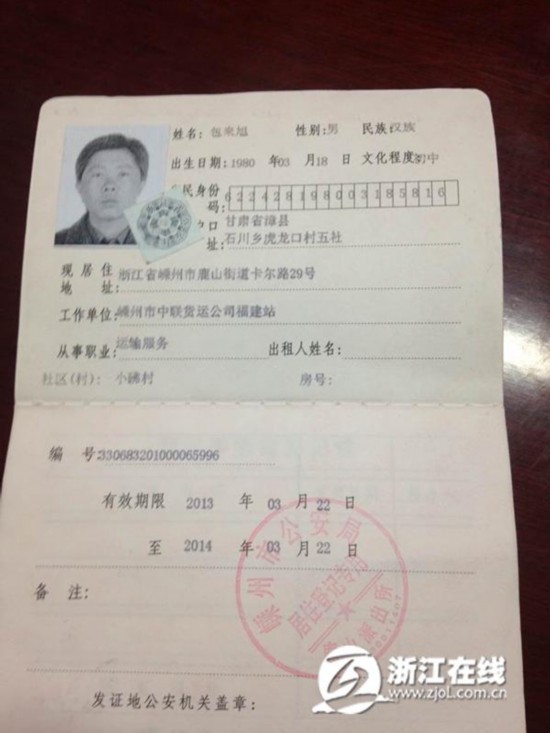 姓名: 包来旭 性别: 男 民族: 汉族
出生日期: 1980 年 03 月 18 日 文化程度: 初中
民身份
码: 622428198003185816
户口 甘肃省漳县
址: 石川乡虎龙口村五社
现居住 浙江省嵊州市鹿山街道卡尔路29号
地 址:
工作单位: 嵊州市中联货运公司福建站
从事职业: 运输服务 出租人姓名:
社区(村): 小砩村 房号:
编 号: 330683201000065996
有效期限 2013 年 03 月 22 日
至 2014 年 03 月 22 日
备 注:
嵊州市公安局
居住登记专用
派出所
发证地公安机关盖章:
浙江在线
www.zjol.com.cn